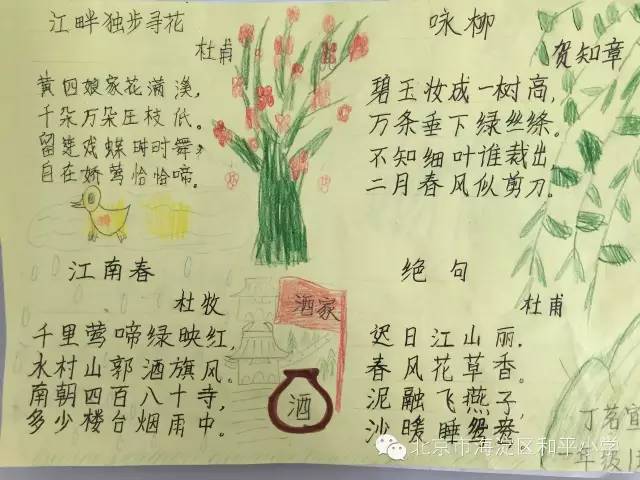 江畔独步寻花
杜甫
黄四娘家花满溪,
千朵万朵压枝低。
留连戏蝶时时舞,
自在娇莺恰恰啼。
咏柳
贺知章
碧玉妆成一树高,
万条垂下绿丝绦。
不知细叶谁裁出,
二月春风似剪刀。
江南春
杜牧
千里莺啼绿映红,
水村山郭酒旗风。
南朝四百八十寺,
多少楼台烟雨中。
酒家
酒
绝句
杜甫
迟日江山丽.
春风花草香。
泥融飞燕子,
沙暖睡鸳鸯。
丁茗宜
一年级
北京市海淀区和平小学